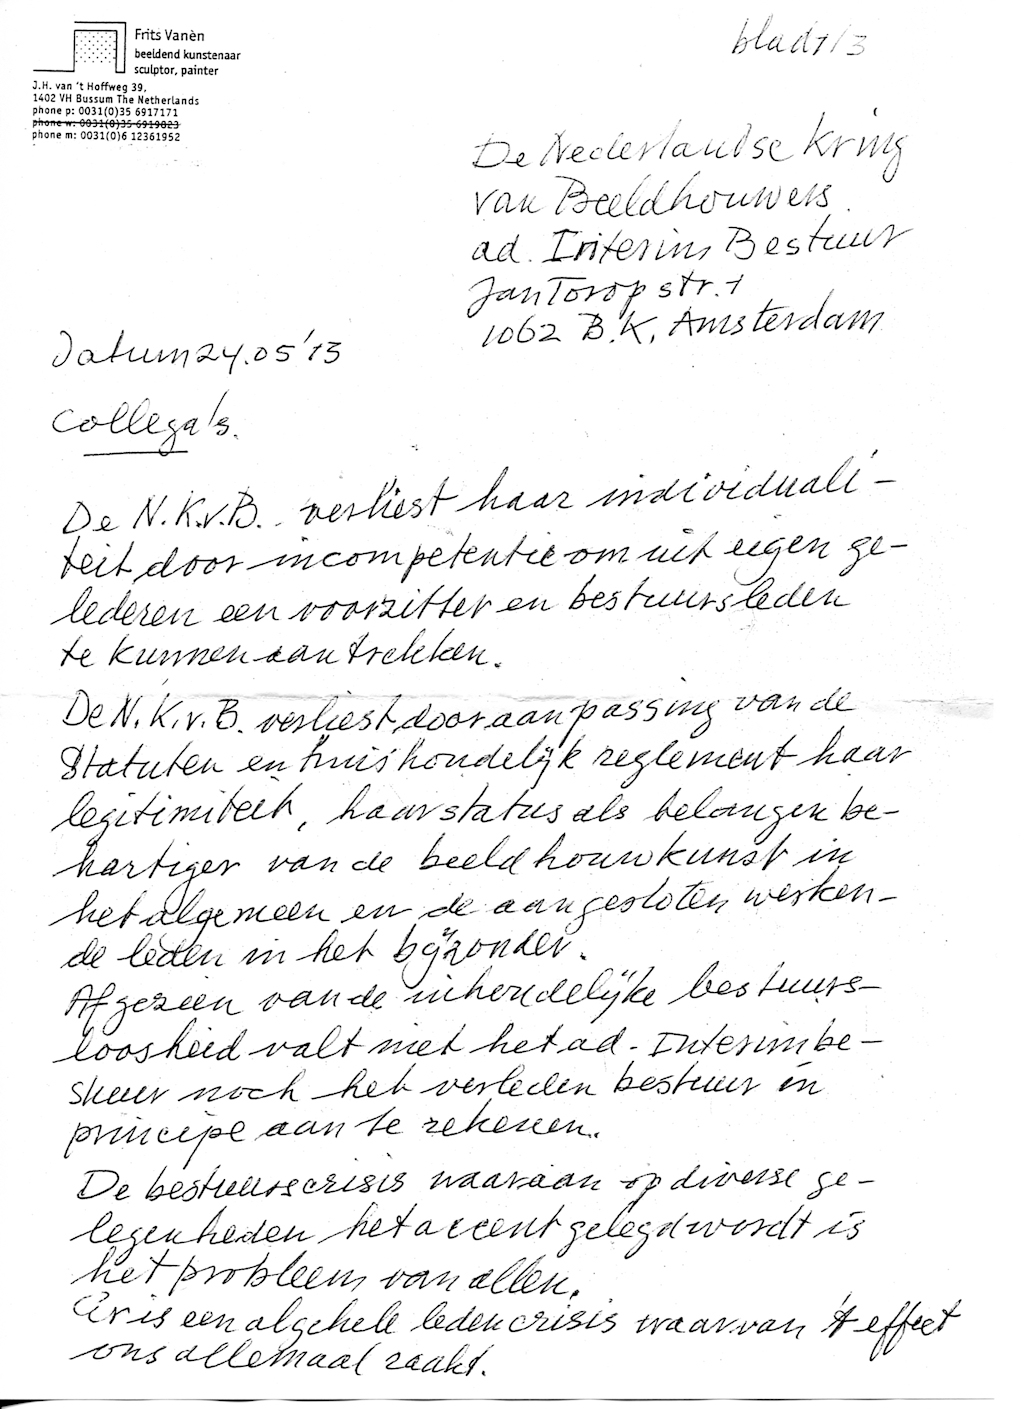 Frits Vanèn
beeldend kunstenaar
sculptor, painter
J.H. van 't Hoffweg 39,
1402 VH Bussum The Netherlands
phone p: 0031(0)35 6917171
phone w: 0031(0)35 6919823
phone m: 0031(0)6 12361952
blad 1/3
De Nederlandse Kring
van Beeldhouwers.
ad. Interim Bestuur
Jan Torop str. 1
1062 B.K. Amsterdam
Datum 24.05'13
Collega's.
De N.K.v.B. verliest haar individuali-
teit door incompetentie om uit eigen ge-
lederen een voorzitter en bestuursleden
te kunnen aantrekken.
De N.K.v.B. verliest door aanpassing van de
Statuten en huishoudelijk reglement haar
legitimiteit, haar status als belangen be-
hartiger van de beeldhouwkunst in
het algemeen en de aangesloten werken-
de leden in het bijzonder.
Afgezien van de inhoudelijke bestuurs-
loosheid valt niet het ad-Interim be-
stuur noch het verleden bestuur in
principe aan te rekenen.
De bestuurscrisis waaraan op diverse ge-
legenheden het accent gelegd wordt is
het probleem van allen.
Er is een algehele ledencrisis waarvan 't effect
ons allemaal raakt.